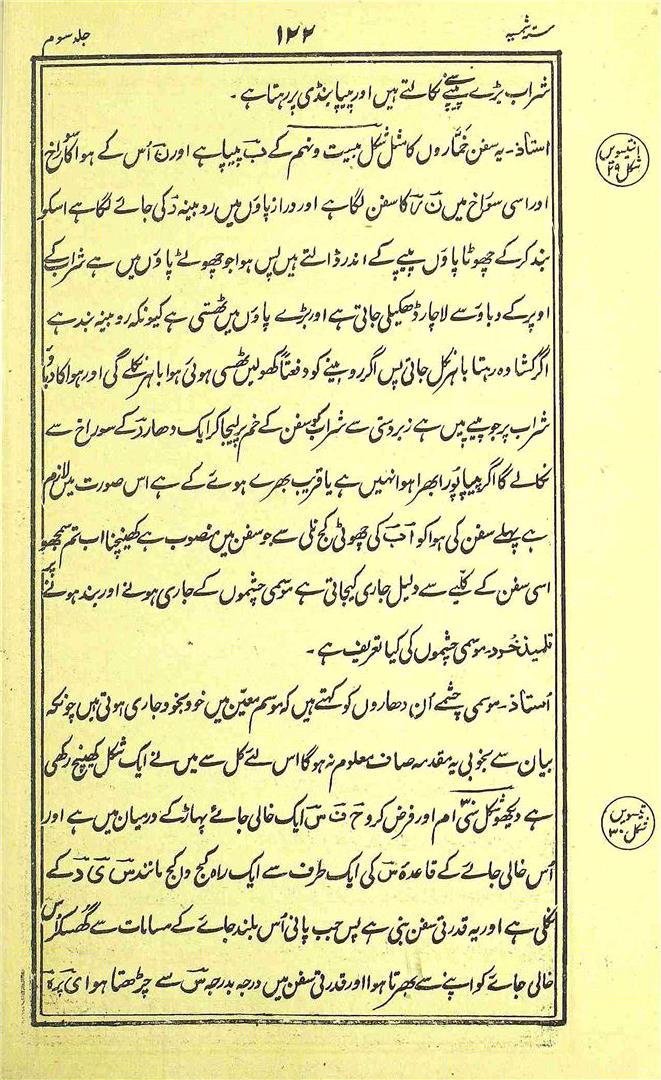 ستہ شمسیہ ۱۲۲ جلد سوم
شراب بڑے پیپے سے نکالتے ہیں اور پیپا بنڈی پر رہتا ہے ۔
استاذ ۔ یہ سفن خمّاروں کا مثل شکل بیست و نہم کے ب پیپا ہے اور ن اُس کے ہوا کا سوراخ
اور اسی سوراخ میں ن ر کا سفن لگا ہے اور دراز پاؤں میں روبینہ د کی جائے لگا ہے اسکو
بند کر کے چھوٹا پاؤں پیپے کے اندر ڈالتے ہیں پس ہوا جو چھوٹے پاؤں میں ہے شراب کے
اوپر کے دباؤ سے لاچار ڈھکیلی جاتی ہے اور بڑے پاؤں میں ٹھستی ہے کیونکہ روبینہ بند ہے
اگر کشادہ رہتا باہر نکل جاتی پس اگر روبینے کو دفعتاً کھولیں ٹھسی ہوئی ہوا باہر نکلے گی اور ہوا کا دباؤ
شراب پر جو پیپے میں ہے زبردستی سے شراب کو سفن کے خم پر لیجا کر ایک دھار د کے سوراخ سے
نکالے گا اگر پیپا پورا بھرا ہوا نہیں ہے یا قریب بھرے ہوئے کے ہے اس صورت میں لازم
ہے پہلے سفن کی ہوا کو آ ب کی چھوٹی کج نلی سے جو سفن میں منصوب ہے کھینچنا اب تم سمجھو
اسی سفن کے کلیے سے دلیل جاری کیجاتی ہے موسمی چشموں کے جاری ہونے اور بند ہونے پر
تلمیذ خُرد ۔ موسمی چشموں کی کیا تعریف ہے ۔
اُستاذ ۔ موسمی چشمے اُن دھاروں کو کہتے ہیں کہ موسم معین میں خود بخود جاری ہوتی ہیں چونکہ
بیان سے بخوبی یہ مقدمہ صاف معلوم نہ ہوگا اس لئے کل سے میں نے ایک شکل کھینچ رکھی
ہے دیکھو شکل سی ۳۰ ام اور فرض کرو ح ف س ایک خالی جائے پہاڑ کے درمیان میں ہے اور
اُس خالی جائے کے قاعدۂ س کی ایک طرف سے ایک راہ کج و کج مانند س ی د کے
نکلی ہے اور یہ قدرتی سفن بنی ہے پس جب پانی اُس بلند جائے کے مسامات سے گھسکر اس
خالی جائے کو اپنے سے بھرتا ہوا اور قدرتی سفن میں درجہ بدرجہ س سے چڑھتا ہوا ی پر
انتیسویں
شکل ۲۹
تیسویں
شکل ۳۰